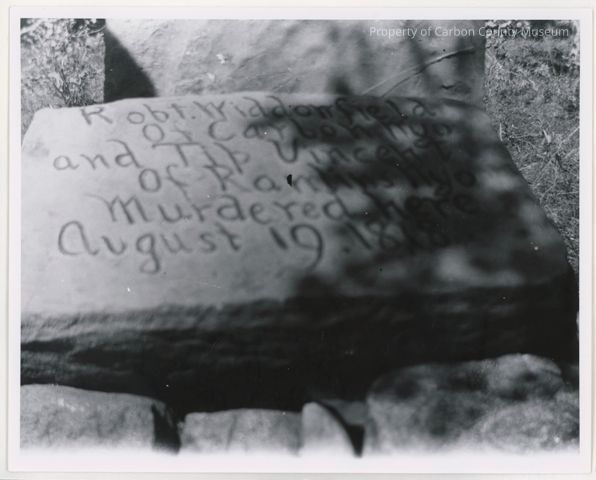 Property of Carbon County Museum
Robt. Widdonfield
Of Carbon Wyo
and Tip Vincent
Of Rawlins Wyo
Murdered here
August 19. 1878